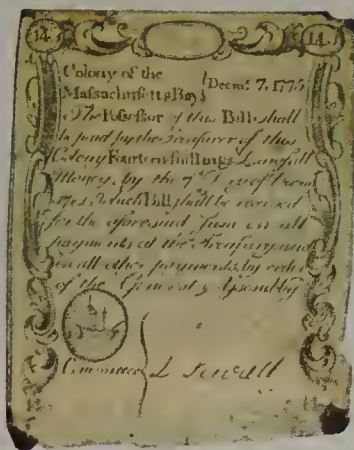 14 14
Colony of the } Decmr. 7. 1775
Massachusetts Bay }
The Possessor of this Bill shall
be paid by the Treasurer of this
Colony Fourteen Shillings Lawfull
Money, by the 7th. of
Which Bill shall be received
for the aforesaid Sum in all
payments at the Treasury and
in all other payments by order
of the General Assembly
Committee } L Sewall